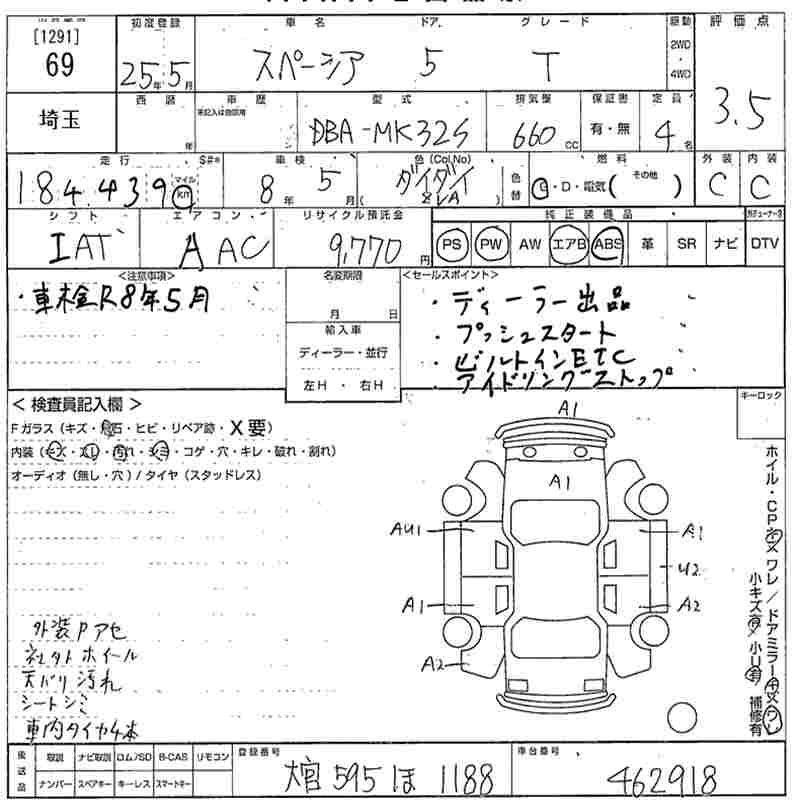 [1291]
69
初度登録
25年5月
車名 ドア グレード
スペーシア 5 T
駆動
2WD
・
4WD
評価点
3.5
埼玉
西暦
年
車歴
未記入は自家用
型式
DBA-MK32S
排気量
660cc
保証書
有・無
定員
4名
走行 S#*
184,439 マイル km
車検
8年5月
色(Col No)
ダイダイ
( ZVA )
色替
燃料
G・D・電気( その他 )
外装 内装
C C
シフト
IAT
エアコン
AAC
リサイクル預託金
9,770円
純正装備品
PS PW AW エアB ABS 革 SR ナビ DTV
<注意事項>
・車検R8年5月
名変期限
月 日
輸入車
ディーラー・並行
左H ・ 右H
<セールスポイント>
・ディーラー出品
・プッシュスタート
・ビルトインETC
・アイドリングストップ
キーロック
<検査員記入欄>
Fガラス(キズ・飛石・ヒビ・リペア跡・X要)
内装(キズ・スレ・汚れ・シミ・コゲ・穴・キレ・破れ・割れ)
オーディオ(無し・穴)/タイヤ(スタッドレス)
A1
A1
AU1 A1
U2
A1 A2
A2
ホイル・CPキズワレ/ドアミラーキズワレ
小キズ有 小U有 補修有
外装Pアセ
社外ホイール
天バリ汚れ
シートシミ
車内タイヤ4本
後送品
取説 ナビ取説 ロム/SD B-CAS リモコン
ナンバー スペアキー キーレス スマートキー
登録番号
大宮 595 ほ 1188
車台番号
462918